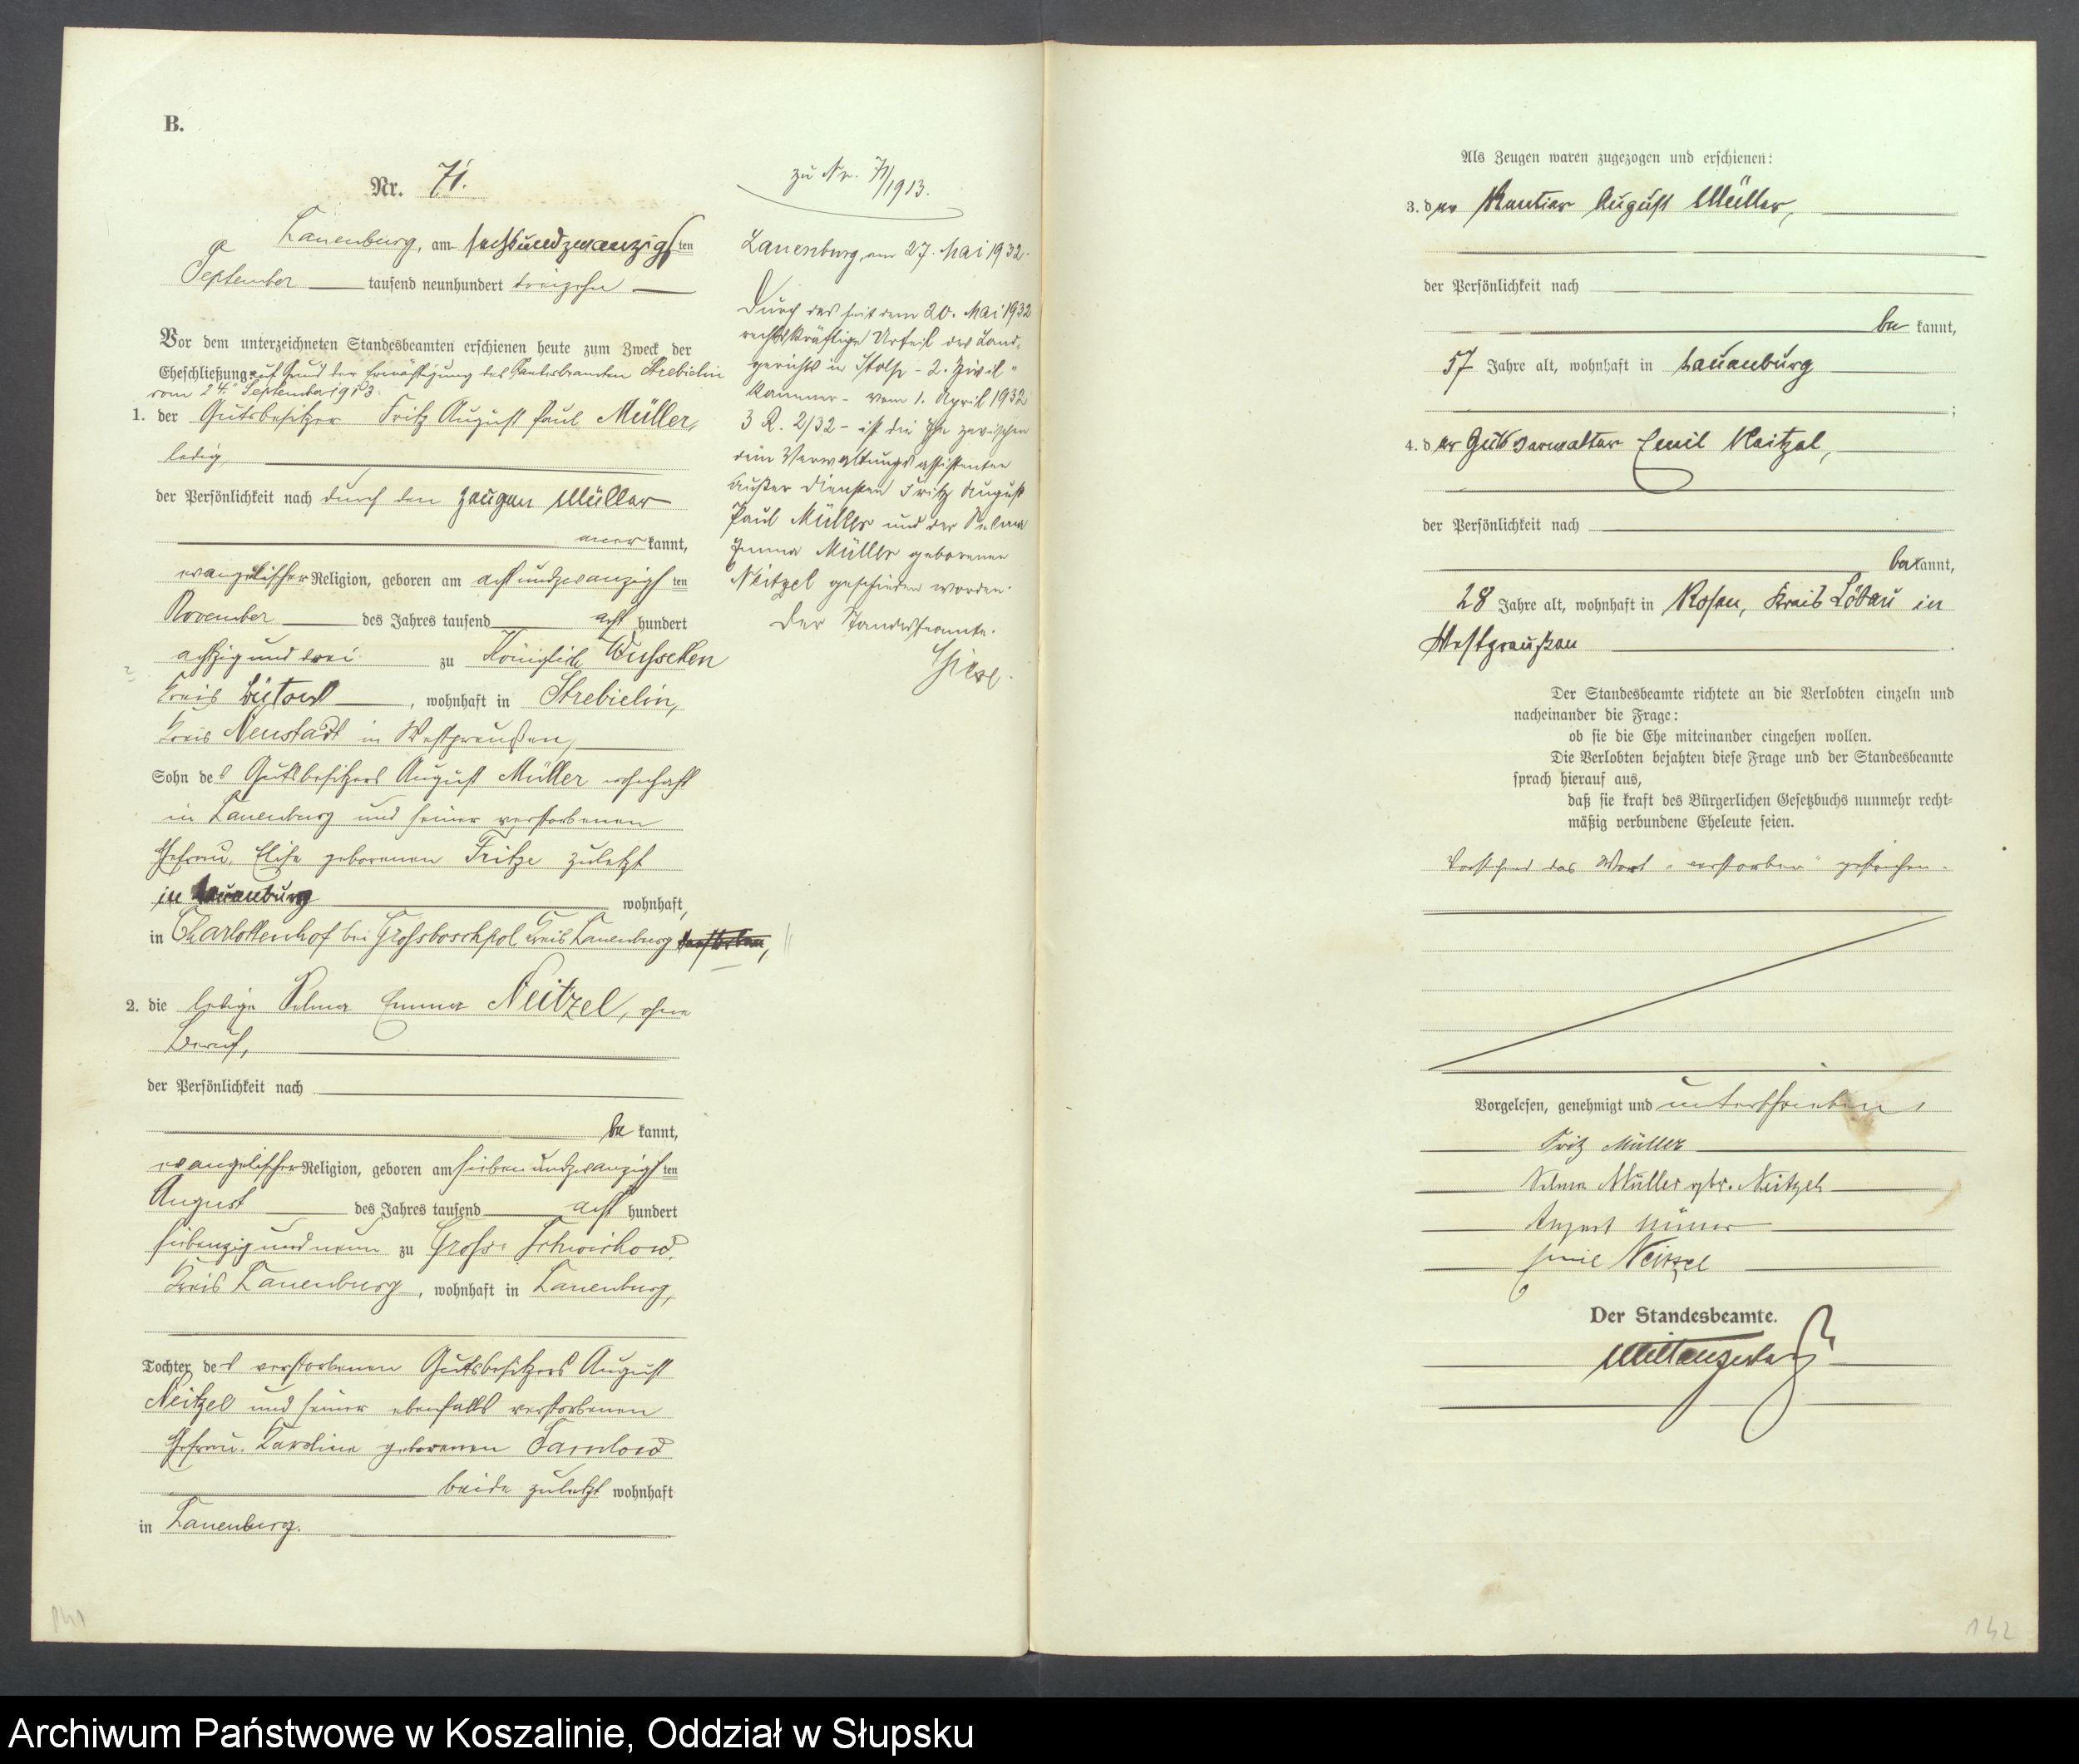 B.
Nr. 71.
Lauenburg, am sechsundzwanzigsten
September tausend neunhundert dreizehn
Vor dem unterzeichneten Standesbeamten erschienen heute zum Zweck der
Eheschließung auf Grund der Ermächtigung des Standesbeamten Strebielin
vom 24. September 1913.
1. der Gutsbesitzer Fritz August Paul Müller,
ledig,
der Persönlichkeit nach durch den Zeugen Müller
anerkannt,
evangelischer Religion, geboren am achtundzwanzigsten
November des Jahres tausend acht hundert
achtzig und drei zu Königlich Wusseken
Kreis Bütow, wohnhaft in Strebielin,
Kreis Neustadt in Westpreußen,
Sohn des Gutsbesitzers August Müller wohnhaft
in Lauenburg und seiner verstorbenen
Ehefrau, Elise geborenen Fritze zuletzt
in Lauenburg wohnhaft,
in Charlottenhof bei Grossboschpol Kreis Lauenburg verstorben,
2. die ledige Selma Emma Neitzel, ohne
Beruf,
der Persönlichkeit nach
be kannt,
evangelischer Religion, geboren am siebenundzwanzigsten
August des Jahres tausend acht hundert
siebenzig und neun zu Gross Schwichow,
Kreis Lauenburg, wohnhaft in Lauenburg,
Tochter des verstorbenen Gutsbesitzers August
Neitzel und seiner ebenfalls verstorbenen
Ehefrau, Karoline geborenen
beide zuletzt wohnhaft
in Lauenburg.
141
zu Nr. 71/1913.
Lauenburg, am 27. Mai 1932.
Durch das seit dem 20. Mai 1932
rechtskräftige Urteil des Land-
gerichts in Stolp - 2. Zivil-
kammer - vom 1. April 1932
3 R. 2/32 - ist die Ehe zwischen
dem Verwaltungsassistenten
außer Diensten Fritz August
Paul Müller und der Selma
Emma Müller geborenen
Neitzel geschieden worden.
Der Standesbeamte.
Als Zeugen waren zugezogen und erschienen:
3. der Rentier August Müller,
der Persönlichkeit nach
be kannt,
57 Jahre alt, wohnhaft in Lauenburg
;
4. der Gutsverwalter Emil Neitzel,
der Persönlichkeit nach
bekannt,
28 Jahre alt, wohnhaft in Rosen, Kreis Löbau in
Westpreußen
Der Standesbeamte richtete an die Verlobten einzeln und
nacheinander die Frage:
ob sie die Ehe miteinander eingehen wollen.
Die Verlobten bejahten diese Frage und der Standesbeamte
sprach hierauf aus,
daß sie kraft des Bürgerlichen Gesetzbuchs nunmehr recht-
mäßig verbundene Eheleute seien.
Vorstehend das Wort "verstorben" gestrichen.
Vorgelesen, genehmigt und unterschrieben
Fritz Müller
Selma Müller gbr. Neitzel
August Müller
Emil Neitzel
Der Standesbeamte.
142
Archiwum Państwowe w Koszalinie, Oddział w Słupsku